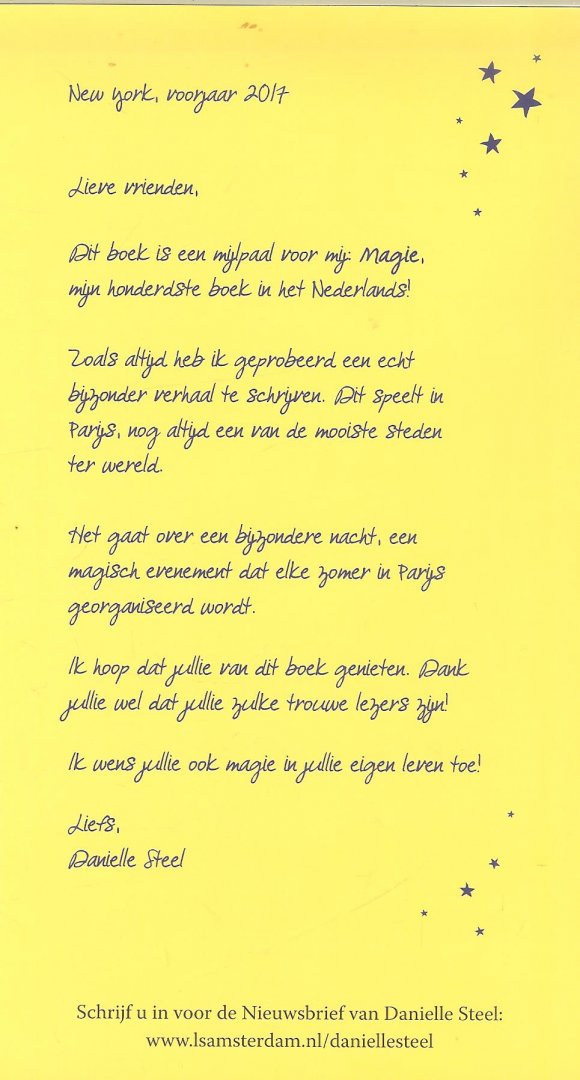 New York, voorjaar 2017
Lieve vrienden,
Dit boek is een mijlpaal voor mij: Magie,
mijn honderdste boek in het Nederlands!
Zoals altijd heb ik geprobeerd een echt
bijzonder verhaal te schrijven. Dit speelt in
Parijs, nog altijd een van de mooiste steden
ter wereld.
Het gaat over een bijzondere nacht, een
magisch evenement dat elke zomer in Parijs
georganiseerd wordt.
Ik hoop dat jullie van dit boek genieten. Dank
jullie wel dat jullie zulke trouwe lezers zijn!
Ik wens jullie ook magie in jullie eigen leven toe!
Liefs,
Danielle Steel
Schrijf u in voor de Nieuwsbrief van Danielle Steel:
www.lsamsterdam.nl/daniellesteel